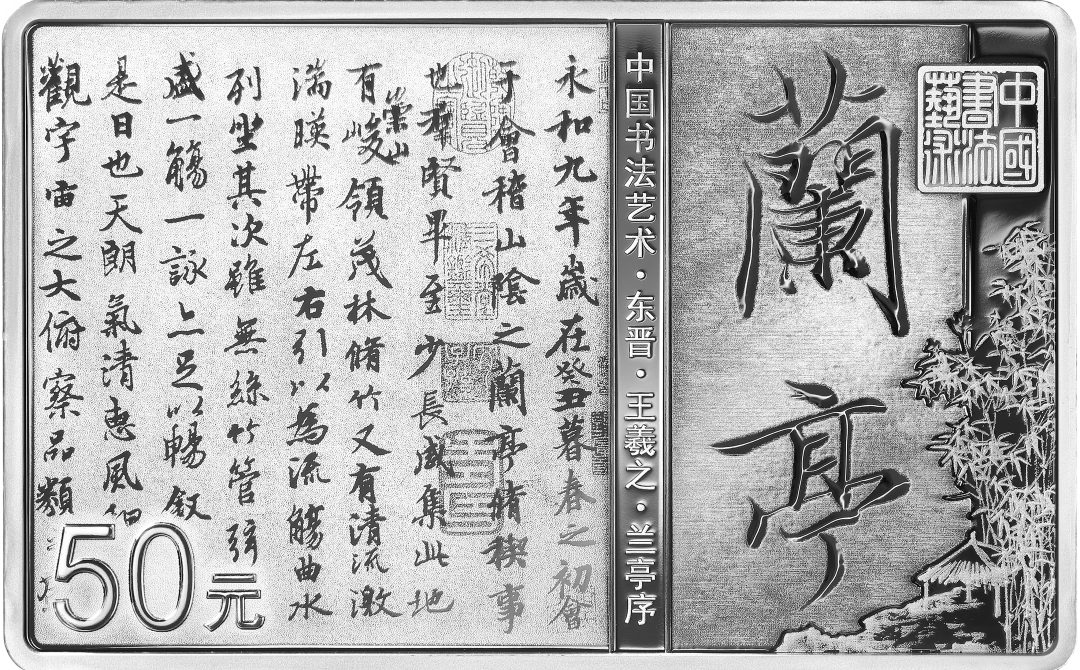 中國
書法
藝術
蘭亭
中国书法艺术·东晋·王羲之·兰亭序
永和九年歲在癸丑暮春之初會
于會稽山陰之蘭亭脩稧事
也羣賢畢至少長咸集此地
有崇山峻領茂林脩竹又有清流激
湍暎帶左右引以為流觴曲水
列坐其次雖無絲竹管弦
盛一觴一詠亦足以暢敘
是日也天朗氣清惠風和
觀宇宙之大俯察品類
50元